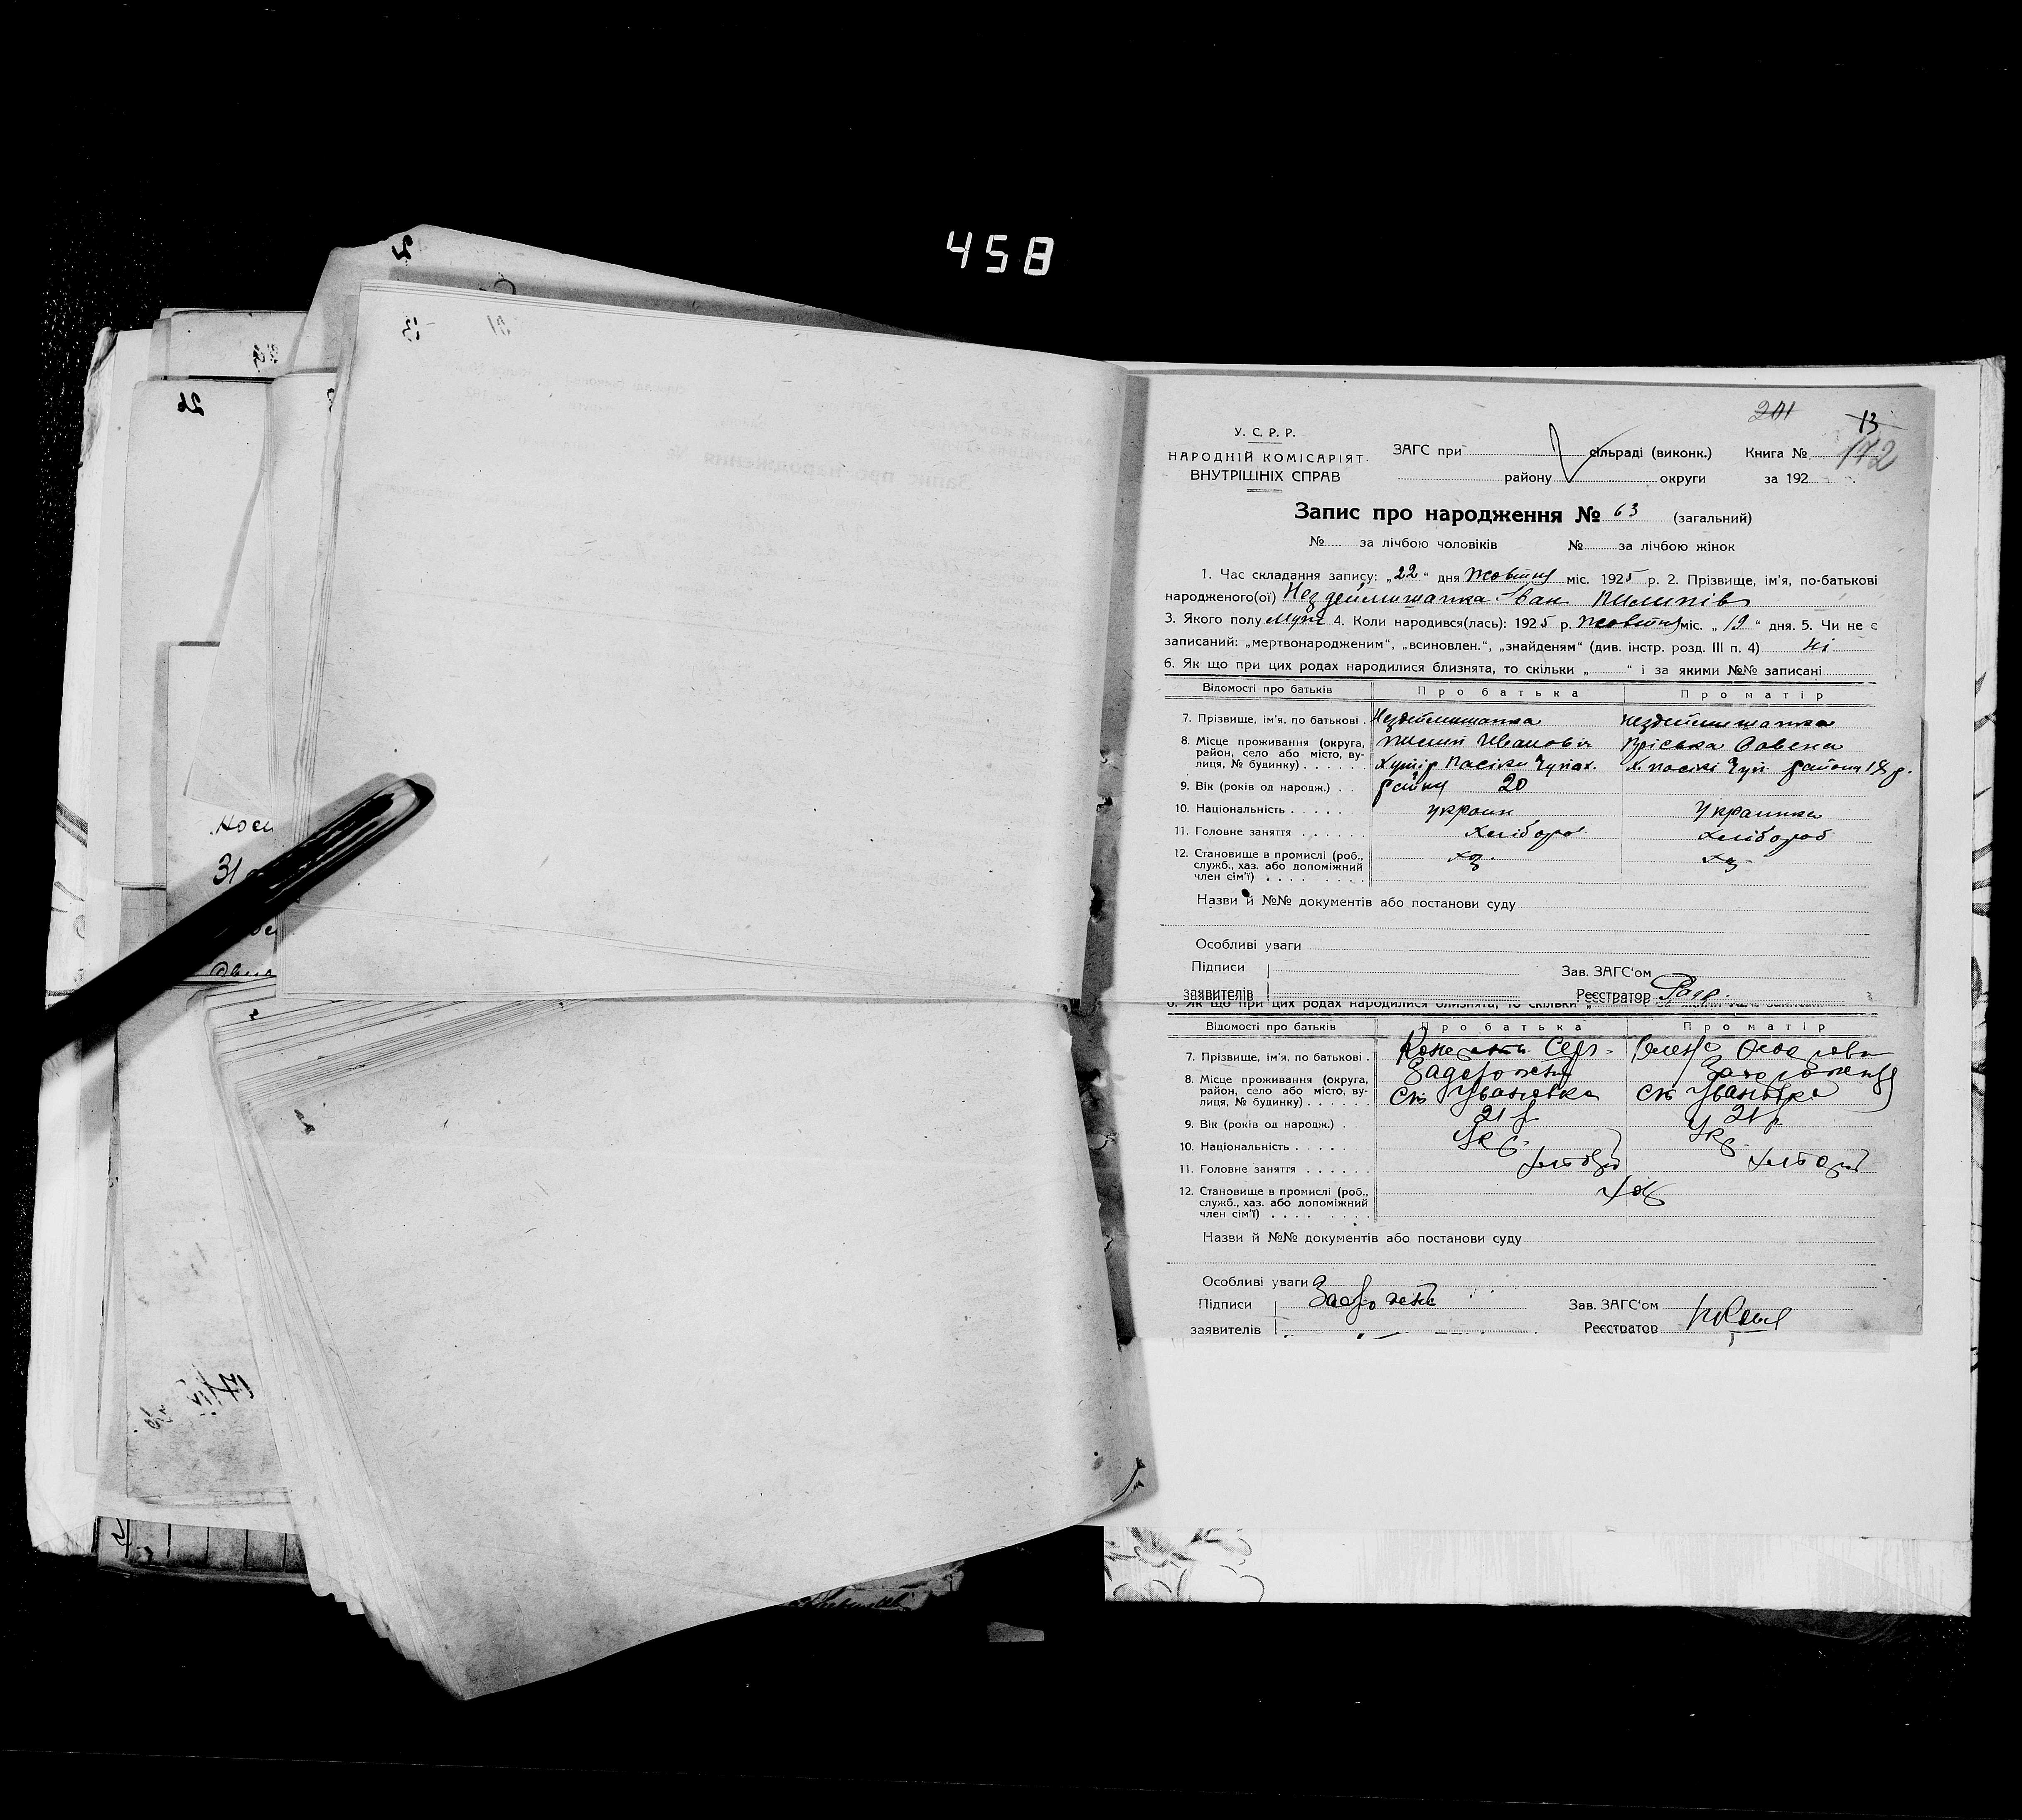 458
201 13
142
У. С. Р. Р.
НАРОДНІЙ КОМІСАРІЯТ
ВНУТРІШНІХ СПРАВ
ЗАГС при сільраді (виконк.) Книга №
району округи за 192
Запис про народження № 63 (загальний)
№ за лічбою чоловіків № за лічбою жінок
1. Час складання запису: „22“ дня жовтня міс. 1925 р. 2. Прізвище, ім'я, по-батькові
народженого(ої) Нездеймишапка Іван Пилипів
3. Якого полу муж 4. Коли народився(лась): 1925 р. жовтня міс. „19“ дня. 5. Чи не є
записаний: „мертвонародженим“, „всиновлен.“, „знайденям“ (див. інстр. розд. III п. 4) ні
6. Як що при цих родах народилися близнята, то скільки „ “ і за якими №№ записані
Відомості про батьків Про батька Про матір
7. Прізвище, ім'я, по батькові . Нездеймишапка Нездеймишапка
8. Місце проживання (округа, Пилип Іванович Пріська
район, село або місто, ву-
лиця, № будинку) . . . . . . Хутір Пасіки Чупах. х. Пасікі Чуп. района 18 р.
9. Вік (років од народж.) . . району 20
10. Національність . . . . . украин Украинка
11. Головне заняття . . . . . . хлібороб хлібороб
12. Становище в промислі (роб., хаз. хаз.
служб., хаз. або допоміжний
член сім'ї) . . . . . . . .
Назви й №№ документів або постанови суду
Особливі уваги
Підписи Зав. ЗАГС'ом
заявителів Реєстратор
6. Як що при цих родах народилися близнята, то скільки „
Відомості про батьків Про батька Про матір
7. Прізвище, ім'я, по батькові .
8. Місце проживання (округа, Задорожній
район, село або місто, ву-
лиця, № будинку) . . . . . . Ивановка
9. Вік (років од народж.) . 21 р 21 р
10. Національність . . . . . Укр. Укр.
11. Головне заняття . . . . . .
12. Становище в промислі (роб., хоз
служб., хаз. або допоміжний
член сім'ї) . . . . . . . .
Назви й №№ документів або постанови суду
Особливі уваги
Підписи Задорожній Зав. ЗАГС'ом
заявителів Реєстратор